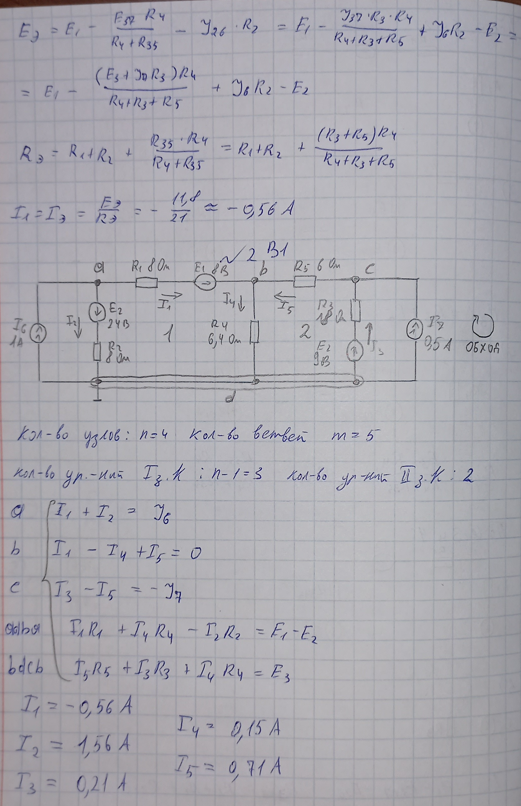 Eэ = E1 - E37·R4 / R4+R35 - J26·R2 = E1 - J37·R3·R4 / R4+R3+R5 + J6R2 - E2 =
= E1 - (E3+J7R3)R4 / R4+R3+R5 + J6R2 - E2
Rэ = R1+R2 + R35·R4 / R4+R35 = R1+R2 + (R3+R5)R4 / R4+R3+R5
I1 = Iэ = Eэ / Rэ = - 11,8 / 21 ≈ -0,56 А
√2 В1
a R1 8 Ом E1 8В b R5 6 Ом c
I1 I4 I5
I6 1А I2 E2 24В 1 R4 6,4 Ом 2 R3 I3 0,5 А обход
R2 8 Ом E2 9В
d
кол-во узлов: n=4 кол-во ветвей m=5
кол-во ур.-ний I з.К : n-1=3 кол-во ур-ний II з.К : 2
a I1 + I2 = J6
b I1 - I4 + I5 = 0
c I3 - I5 = -J7
I1R1 + I4R4 - I2R2 = E1 - E2
bdcb I5R5 + I3R3 + I4R4 = E3
I1 = -0,56 А
I4 = 0,15 А
I2 = 1,56 А
I5 = 0,71 А
I3 = 0,21 А